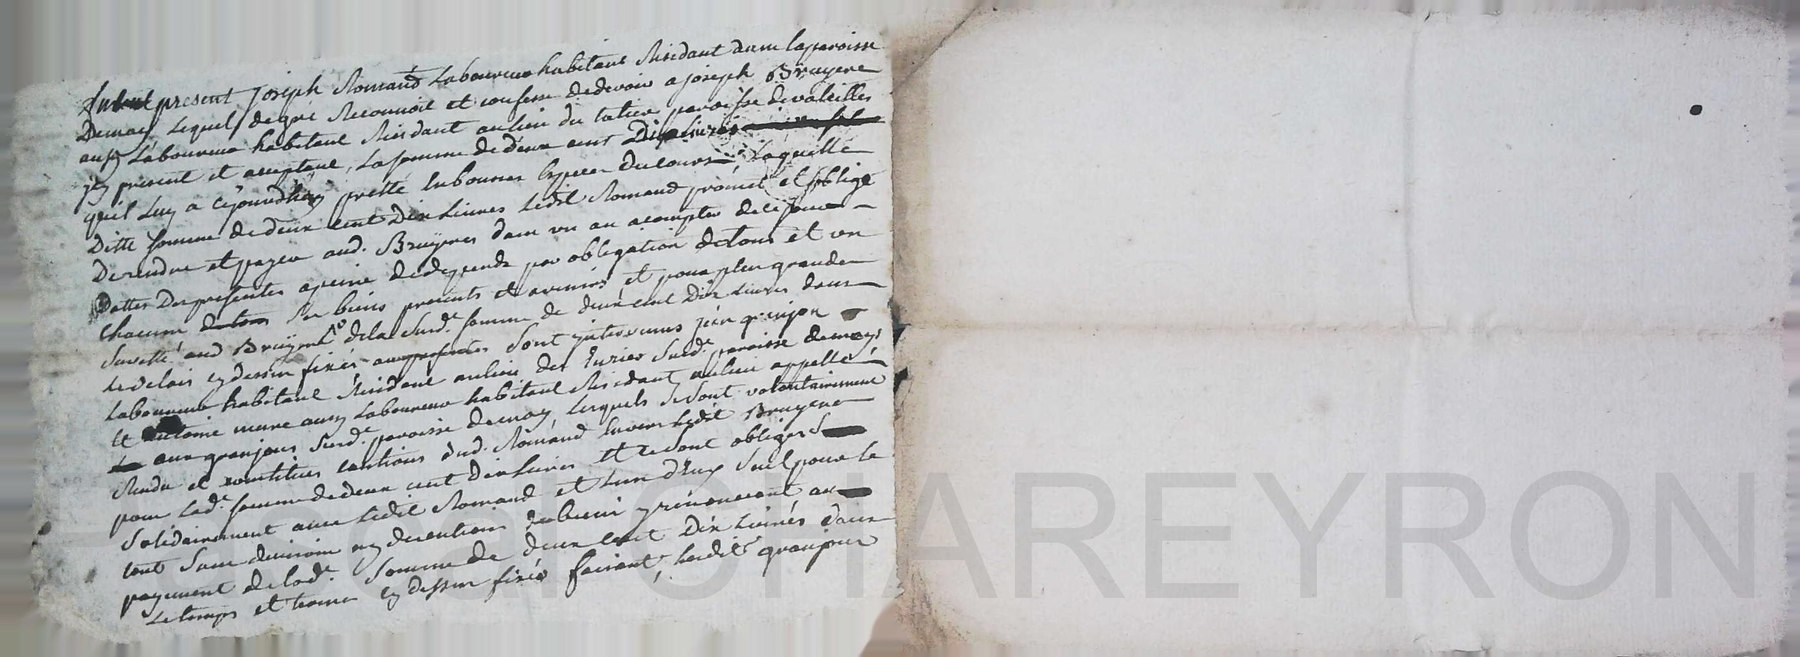 fut present Joseph Romand Laboureur habitant Residant dans la paroisse
Demay Lequel de gré Reconnoit et confesse de devoir a joseph Bruyere
aussy Laboureur habitant Residant au lieu du paroisse de valeilles
jcy present et acceptant, La somme de deux cent Dix Livres
qu'il luy a cejourdhuy pretté En bonnes Especes du cours Laquelle
Ditte somme de deux cent Dix Livres Ledit Romand promet et oblige
De rendre et payer aud. Bruÿeres dans un an a compter de ce jour
Dattes Des presentes a peine de depends par obligation de tous et un
chacuns ses biens presents et avenirs, et pour plus grande
suretté aud Bruyere de la Susd.e somme de deux cent Dix Livres dans
le delais cy dessus fixés aux presentes Sont jntervenus jean granjon
Laboureur habitant Residant au lieu des Susd.e paroisse demay
Et aussy Laboureur habitant Residant au lieu appellé
aux granjons Susd.e paroisse demay Lesquels se sont volontairement
Rendu et constitues cautions dud. Romand Envers Ledit Bruyere
pour Lad.e somme de deux cent dix Livres et se sont obliges
Solidairement avec Ledit Romand et L'un d'Eux Seul pour le
tout Sans division ny discution de biens y renoncent au
payement de lad.e Somme de deux cent Dix Livres dans
Le temps et terme cy dessus fixés faisant, Lesdits granjons
CHAREYRON